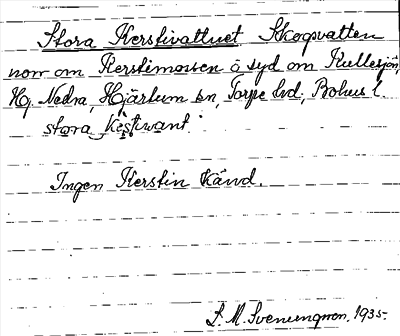 Stora Kerstivattnet Skogsvatten
norr om Kerstimossen o syd om Kullesjön,
Hg. Nedra, Hjärtum sn, Torpe hd, Bohus l.
stora kestivant
Ingen Kerstin känd.
S. M. Svenungson. 1935.